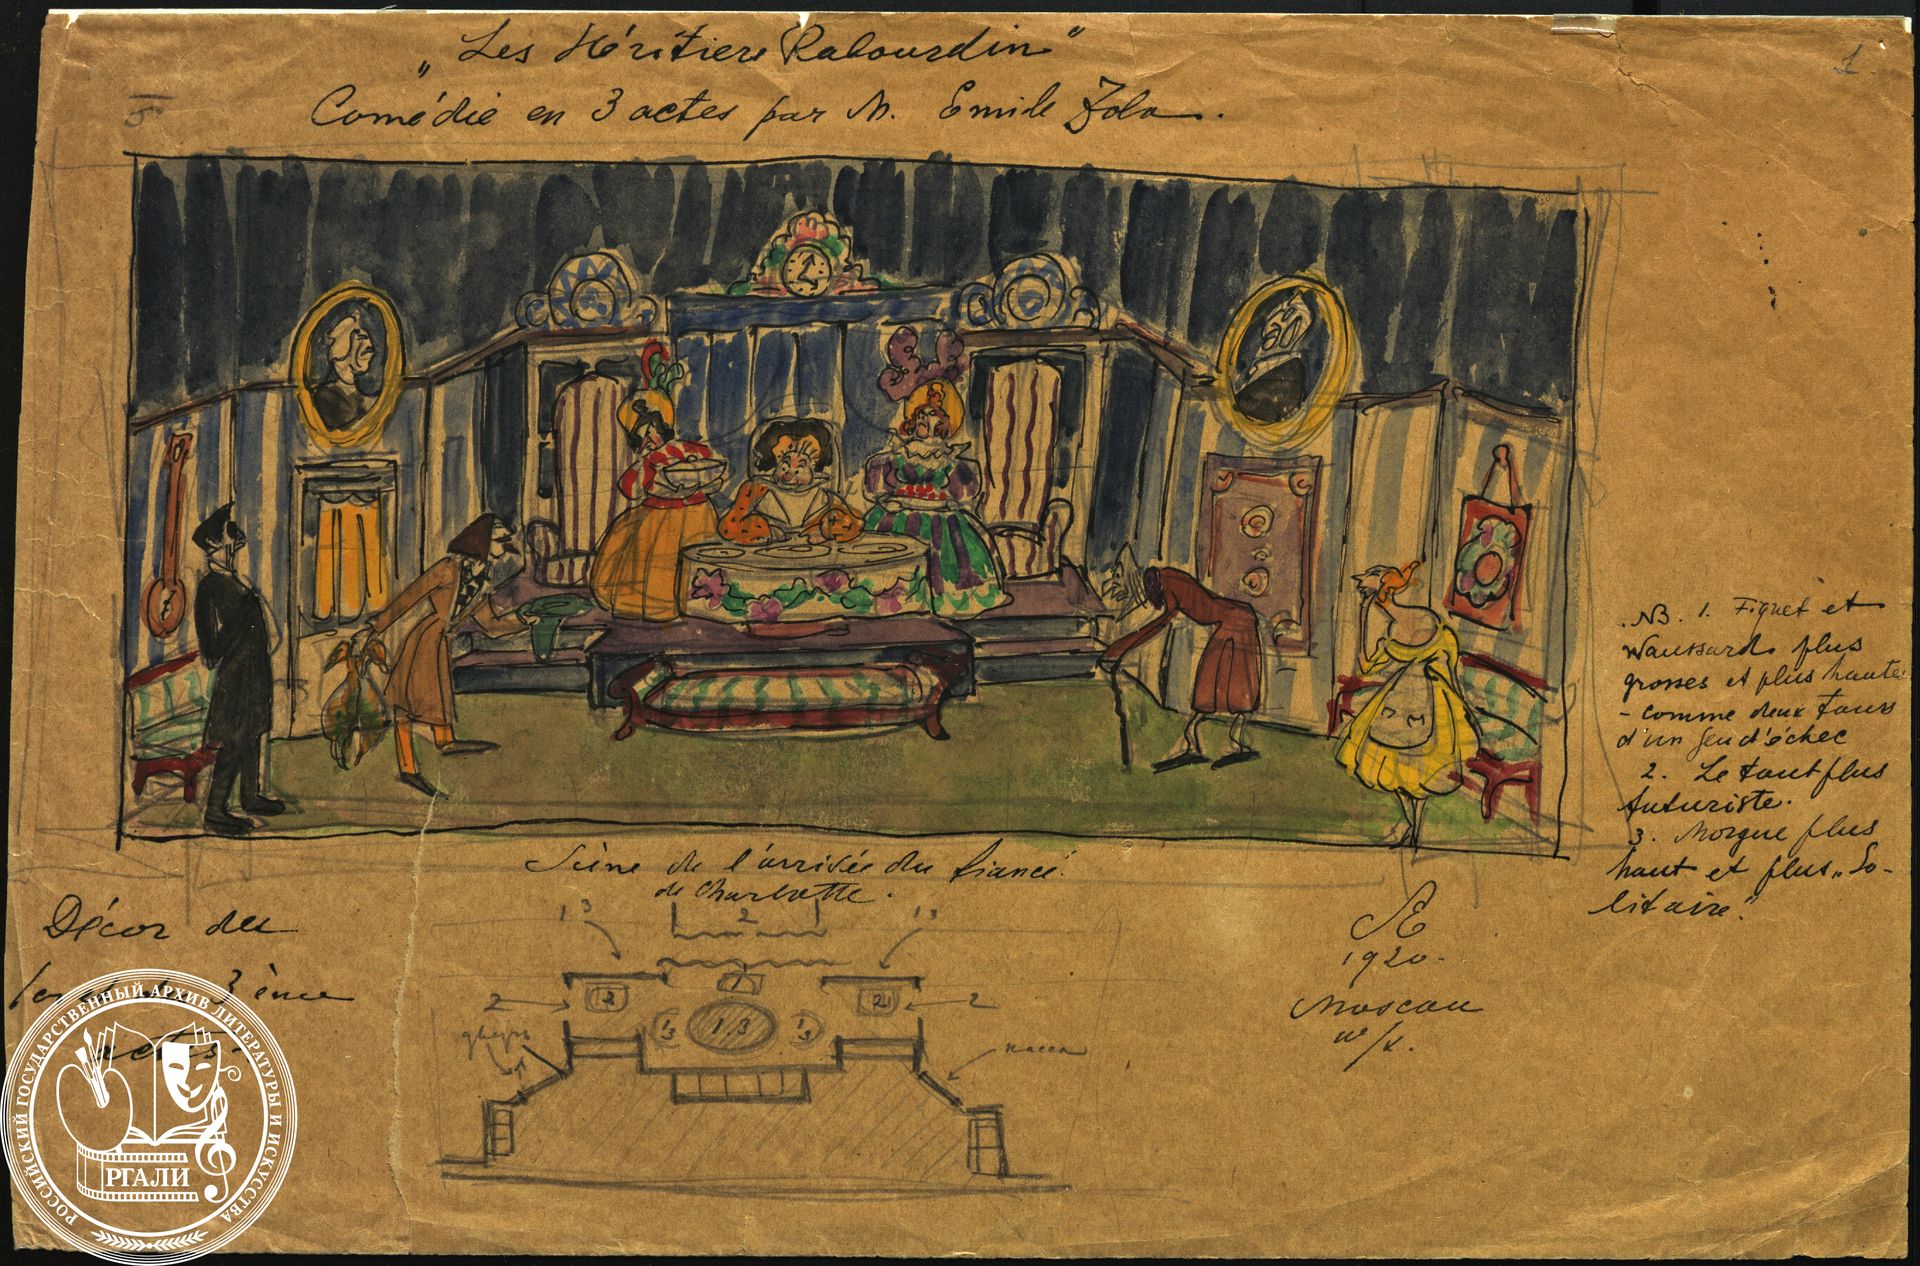 „Les Héritiers Rabourdin"
Comédie en 3 actes par M. Emile Zola.
1
15
NB. 1. Fiquet et
Vaussard plus
grosses et plus hautes
- comme deux tours
d'un jeu d'échec
2. Le tout plus
futuriste.
3. Morgue plus
haut et plus „So-
litaire".
Scène de l'arrivée du fiancé
de Charlotte.
Décor du
3ème
acte
SE
1920.
Moscou
13
2
13
2
2
1
2
2
13
1,3
13
дверь
касса
РОССИЙСКИЙ ГОСУДАРСТВЕННЫЙ АРХИВ ЛИТЕРАТУРЫ И ИСКУССТВА
РГАЛИ